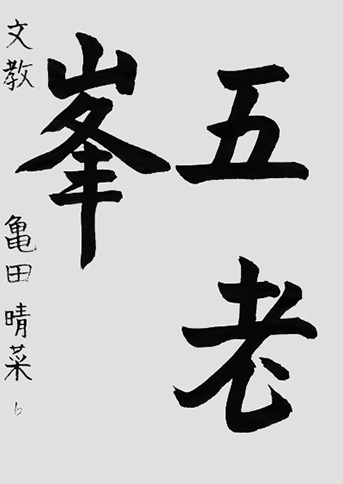 五老
峯
文教 亀田晴菜